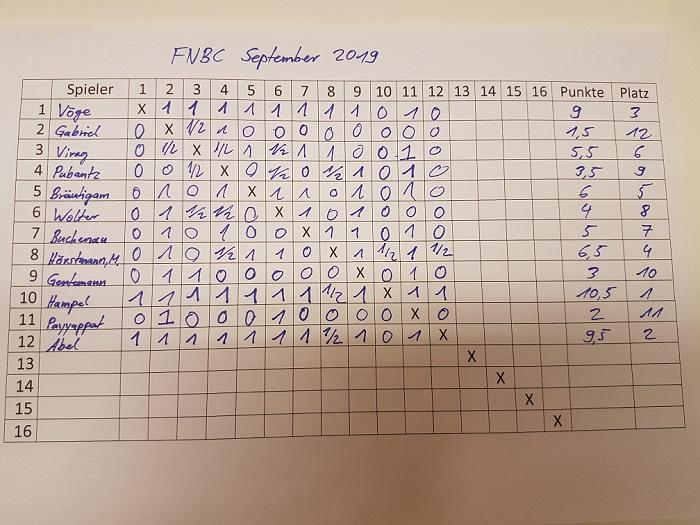 FNBC September 2019
Spieler 1 2 3 4 5 6 7 8 9 10 11 12 13 14 15 16 Punkte Platz
1 Vöge X 1 1 1 1 1 1 1 1 0 1 0 9 3
2 Gabriel 0 X 1/2 1 0 0 0 0 0 0 0 0 1,5 12
3 Virag 0 1/2 X 1/2 1 1/2 1 1 0 0 1 0 5,5 6
4 Pubantz 0 0 1/2 X 0 1/2 0 1/2 1 0 1 0 3,5 9
5 Bräutigam 0 1 0 1 X 1 1 0 1 0 1 0 6 5
6 Wolter 0 1 1/2 1/2 0 X 1 0 1 0 0 0 4 8
7 Buchenau 0 1 0 1 0 0 X 1 1 0 1 0 5 7
8 Hörstmann, M. 0 1 0 1/2 1 1 0 X 1 1/2 1 1/2 6,5 4
9 Gentemann 0 1 1 0 0 0 0 0 X 0 1 0 3 10
10 Hampel 1 1 1 1 1 1 1 1/2 1 X 1 1 10,5 1
11 Payyappat 0 1 0 0 0 1 0 0 0 0 X 0 2 11
12 Abel 1 1 1 1 1 1 1 1/2 1 0 1 X 9,5 2
13 X
14 X
15 X
16 X